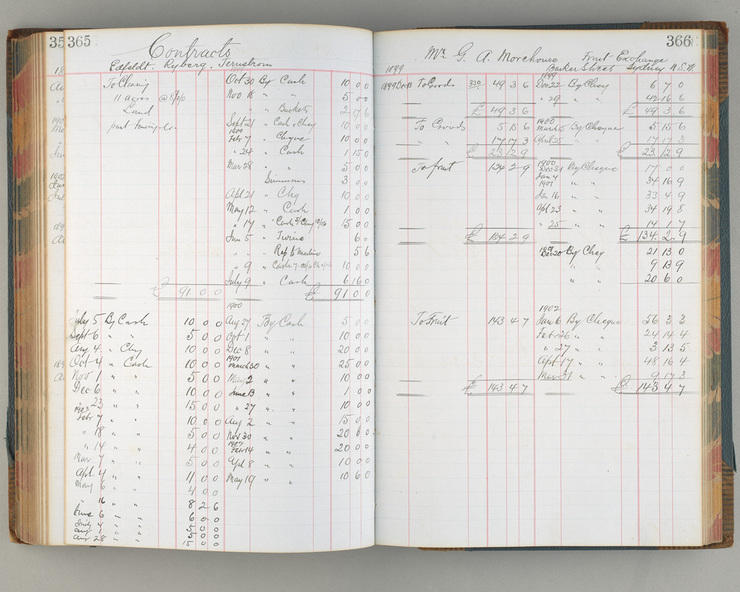 35
365
Contracts
Edfeldt Ryberg, Ternstrom
To Clearing
11 acres @
Land
Oct 30 By Cash 10 0 0
Nov 18 " " 5 0 0
" Baskets 2 17 6
Sept 21 " Cash & Cheq 10 0 0
1900
Feb 7 " Cheque 10 0 0
" 24 " Cash 1 15 0
Mar 28 " " 5 0 0
3 0 0
Apl 21 " Chq 10 0 0
May 12 " Cash 1 0 0
" 14 " 15 0 0
Jun 5 " Twine 6 0
" " 5 6
" 9 " 10 0 0
July 9 " Cash 6 16 0
£ 91 0 0 £ 91 0 0
1900
July 5 By Cash 10 0 0 Aug 27 By Cash 5 0 0
Sept 6 " " 5 0 0 Oct 1 " " 10 0 0
Aug 4 " Chq 10 0 0 Dec 8 " " 20 0 0
1901
Oct 4 " Cash 10 0 0 March 30 " " 25 0 0
Nov 1 " " 5 0 0 May 2 " " 10 0 0
Dec 6 " " 10 0 0 June 13 " " 1 0 0
" 23 " " 15 0 0 " 27 " " 10 0 0
Feb 7 " " 10 0 0 Aug 2 " " 15 0 0
" 18 " " 5 0 0 Nov 30 " " 20 0 0
" 14 " " 4 0 0 Feb 14 " " 20 0 0
Mar 7 " " 5 0 0 Apl 8 " " 10 0 0
Apl 4 " " 11 0 0 May 19 " " 10 6 0
May 6 " " 4 0 0
" 16 " " 8 2 6
June 6 " " 6 0 0
July 4 " " 5 0 0
Aug 1 " " 5 0 0
Aug 28 " " 15 0 0
366
Mr. G. A. Morehouse Fruit Exchange
Barker Street Sydney N.S.W.
1899 1899
To Goods 49 3 6 Dec 22 By Cheq 6 7 0
" 29 " " 42 16 6
£ 49 3 6 £ 49 3 6
1900
To Goods 5 15 6 March 5 By Cheque 5 15 6
" " 17 17 3 April 25 " 17 17 3
£ 23 12 9 £ 23 12 9
1900
To fruit 134 2 9 Dec 31 By Cheque 17 0 0
Jan 4 " " 34 16 9
1901
Jan 16 " " 33 4 9
Apl 23 " " 34 19 8
" 25 " " 14 1 7
£ 134 2 9 £ 134 2 9
Dec 20 By Cheq 21 13 0
" " 9 13 9
" " 20 6 0
1902
To Fruit 143 4 7 Jan 6 By Cheque 56 3 3
Feb 26 " " 24 14 4
" 27 " " 3 13 5
Apl 17 " " 48 16 4
Mar 31 " " 9 17 3
£ 143 4 7 £ 143 4 7